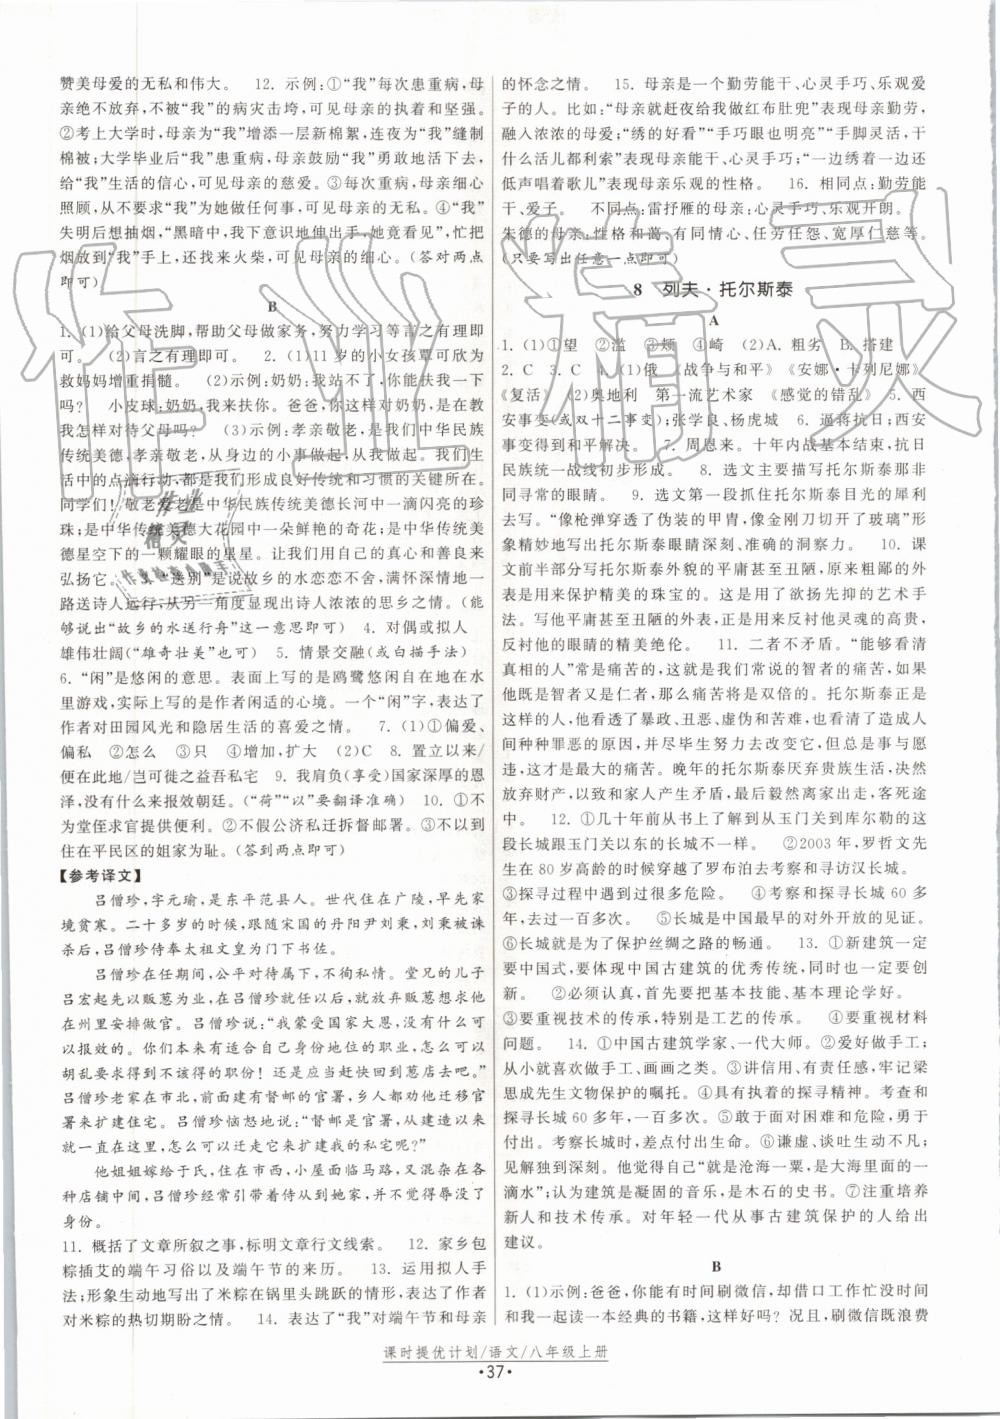 赞美母爱的无私和伟大。　12. 示例：①“我”每次患重病，母
亲绝不放弃，不被“我”的病灾击垮，可见母亲的执着和坚强。
②考上大学时，母亲为“我”增添一层新棉絮，为“我”缝制
棉被；大学毕业后“我”患重病，母亲鼓励“我”勇敢地活下去，
给“我”生活的信心，可见母亲的慈爱。③每次重病，母亲细心
照顾，从不要求“我”为她做任何事，可见母亲的无私。④“我”
失明后想抽烟，“黑暗中，我下意识地伸出手，她竟看见”，忙把
烟放到“我”手上，还找来火柴，可见母亲的细心。（答对两点
即可）
B
1. （1）给父母洗脚，帮助父母做家务，努力学习等言之有理即
可。　（2）言之有理即可。　2. （1）11 岁的小女孩覃可欣为
救妈妈增重捐髓。　（2）示例：奶奶：我站不了，你能扶我一下
吗？　小皮球：奶奶，我来扶你。爸爸，你这样对奶奶，是在教
我怎样对待父母吗？　（3）示例：孝亲敬老，是我们中华民族
传统美德，孝亲敬老，从身边的小事做起，从我做起。我们生
活的方方面面，都能形成良好传统和习惯的关键所在。
（4）示例：敬老爱老是中华民族传统美德长河中一滴闪亮的珍
珠；是中华传统美德大花园中一朵鲜艳的奇花；是中华传统美
德星空下的一颗耀眼的星星。让我们用自己的真心和善良来
弘扬它。　3. “送别”是说故乡的水恋恋不舍，不停地流动着一
路送诗人远行，从另一角度显现出诗人浓浓的思乡之情。（能
够说出“故乡的水送行舟”这一意思即可）　4. 对偶或拟人
雄伟壮阔（“雄奇壮美”也可）　5. 情景交融（或白描手法）
6. “闲”是悠闲的意思。表面上写的是鸥鹭悠闲自在地在水
里游戏，实际上写的是作者闲适的心境。一个“闲”字，表达了
作者对田园风光和隐居生活的喜爱之情。　7. （1）①偏爱、
偏私　②怎么　③只　④增加，扩大　（2）C　8. 置立以来/
便在此地/岂可徙之益吾私宅　9. 我肩负（享受）国家深厚的恩
泽，没有什么来报效朝廷。（“荷”“以”要翻译准确）　10. ①不
为堂侄求官提供便利。②不假公济私迁拆督邮署。③不以到
住在平民区的姐家为耻。（答到两点即可）
【参考译文】
吕僧珍，字元瑜，是东平范县人。世代住在广陵，早先家
境贫寒。二十多岁的时候，跟随宋国的丹阳尹刘秉，刘秉被诛
杀后，吕僧珍侍奉太祖文皇为门下书佐。
吕僧珍在任期间，公平对待属下，不徇私情。堂兄的儿子
吕宏起先以贩葱为业，在吕僧珍就任以后，就放弃贩葱想求他
在州里安排做官。吕僧珍说：“我蒙受国家大恩，没有什么可
以报效的。你们本来有适合自己身份地位的职业，怎么可以
胡乱要求得到不该得的职份！还是应当赶快回葱店吧。”
吕僧珍老家在市北，前面建有督邮的官署，乡人都劝他迁移官
署来扩建住宅。吕僧珍恼怒地说：“督邮是官署，从建造以来
就一直在这里，怎么可以迁走它来扩建我的私宅呢？”
他姐姐嫁给于氏，住在市西，小屋面临马路，又混杂在各
种店铺中间，吕僧珍经常引带着侍从到她家，并不觉得辱没了
身份。
11. 概括了文章所叙之事，标明文章行文线索。　12. 家乡包
粽插艾的端午习俗以及端午节的来历。　13. 运用拟人手
法；形象生动地写出了米粽在锅里头跳跃的情形，表达了作者
对米粽的热切期盼之情。　14. 表达了“我”对端午节和母亲
的怀念之情。　15. 母亲是一个勤劳能干、心灵手巧、乐观爱
子的人。比如：“母亲就赶夜给我做红布肚兜”表现母亲勤劳，
融入浓浓的母爱；“绣的好看”“手巧眼也明亮”“手脚灵活，干
什么活儿都利索”表现母亲能干、心灵手巧；“绣着一边还
低声唱着歌儿”表现母亲乐观的性格。　16. 相同点：勤劳能
干、孝亲。　不同点：雷抒雁的母亲：心灵手巧、乐观开朗。
朱德的母亲：性格和蔼，有同情心、任劳任怨、宽厚仁慈等。
（只要写出任意一点即可）
8　列夫·托尔斯泰
A
1. （1）①望　②滥　③颊　④崎　（2）A. 粗劣　B. 搭建
2. C　3. C　4. （1）俄　《战争与和平》《安娜·卡列尼娜》
《复活》　（2）奥地利　第一流艺术家　《感觉的错乱》　5. 西
安事变（或双十二事变）；张学良、杨虎城　6. 逼蒋抗日；西安
事变得到和平解决。　7. 周恩来。十年内战基本结束，抗日
民族统一战线初步形成。　8. 选文主要描写托尔斯泰那非
同寻常的眼睛。　9. 选文第一段抓住托尔斯泰目光的犀利
去写。“像枪弹穿透了伪装的甲胄，像金刚刀切开了玻璃”形
象精妙地写出托尔斯泰眼睛深刻、准确的洞察力。　10. 课
文前半部分写托尔斯泰外貌的平庸甚至丑陋，原来粗鄙的外
表是用来保护精美的珠宝的。这是一种欲扬先抑的艺术手
法，用写他平庸甚至丑陋的外表，来反衬他灵魂的高贵，
反衬他的眼睛的精美绝伦。　11. 二者不矛盾。“能够看清
真相的人”是痛苦的，这就是我们常说的智者的痛苦，如果这
样的智者又是仁者，那么痛苦将是双倍的。托尔斯泰正是
这样的人，他看透了暴政、丑恶、虚伪和苦难，也看清了造成人
间种种罪恶的原因，并努力去改变它，但总是事与愿
违，这才是最大的痛苦。晚年的托尔斯泰厌弃贵族生活，
放弃财产，以致和家人产生矛盾，最后毅然离家出走，客死途
中。　12. ①几十年前从书上了解到从玉门关到库尔勒的这
段长城跟玉门关以东的长城不一样。　②2003 年，罗哲文先
生在 80 岁高龄的时候穿越了罗布泊去考察和寻访汉长城。
③探寻过程当中出现过很多危险。　④考察和探寻长城 60 多
年，去过一百多次。　⑤长城是中国最早的对外开放的见证。
⑥长城就是为了保护丝绸之路的畅通。　13. ①新建筑一定
要中国式，要体现中国古建筑的优秀传统，同时也要创
新。　②必须认真，首先要把基本技能、基本理论学好。
③要重视技术的传承，特别是工艺的传承。　④要重视材料
问题。　14. ①中国古建筑学家、一代大师。　②爱好做手工；
从小就喜欢做手工、画画之类。③讲信用、有责任感，牢记梁
思成先生文物保护的嘱托。　④有探险寻根精神。考查和
探寻长城 60 多年，去过一百多次。⑤敢于面对困难和危险，勇于
付出。考察长城时，差点付出生命。⑥谦虚、谈吐生动不凡；
见识到深刻。他觉得自己“就是沧海一粟，是大海里面的一
滴水”；认为建筑是凝固的音乐，是木石的史书。⑦注重培养
新人和技术传承。对年轻一代从事古建筑保护的人给出
建议。
B
1. （1）示例：爸爸，你能有时间刷微信，却借口工作忙没时间
和我一起读一本经典的书籍，这样好吗？　况且，刷微信既浪费
课时提优计划/语文/八年级上册
·37·
作业精灵